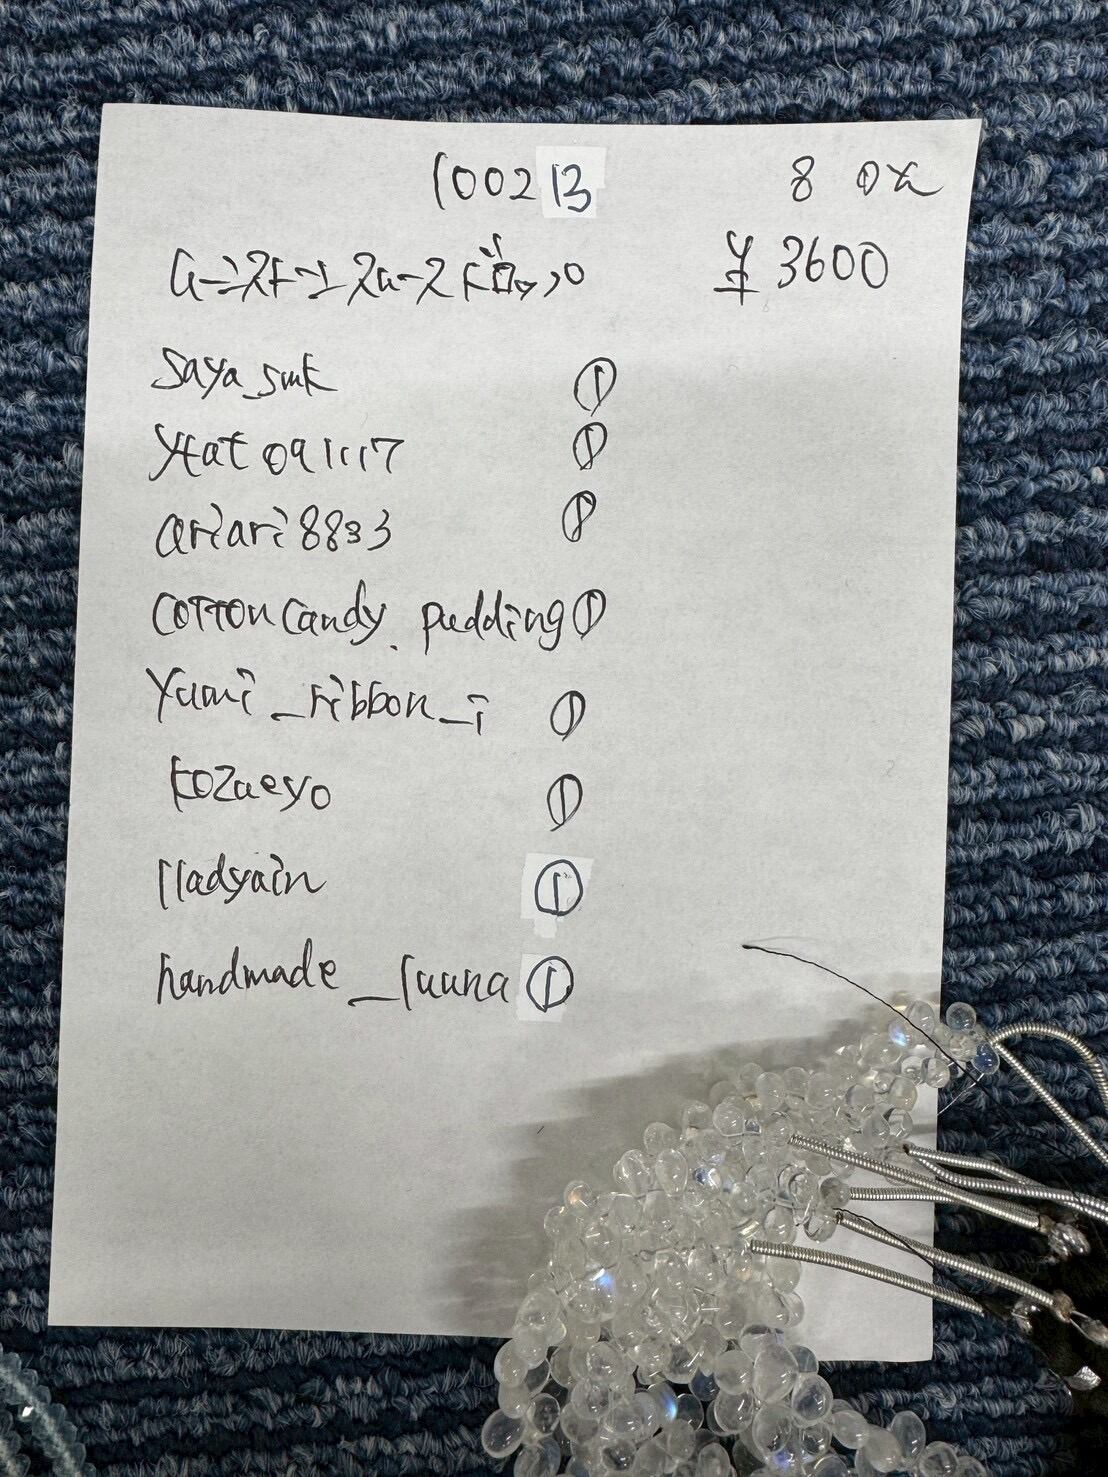 100213 8
¥3600
saya_smk ①
ytat091117 ①
ariari8833 ①
cottoncandy.pudding ①
yumi_ribbon_i ①
kozueyo ①
lladyain ①
handmade_luuna ①